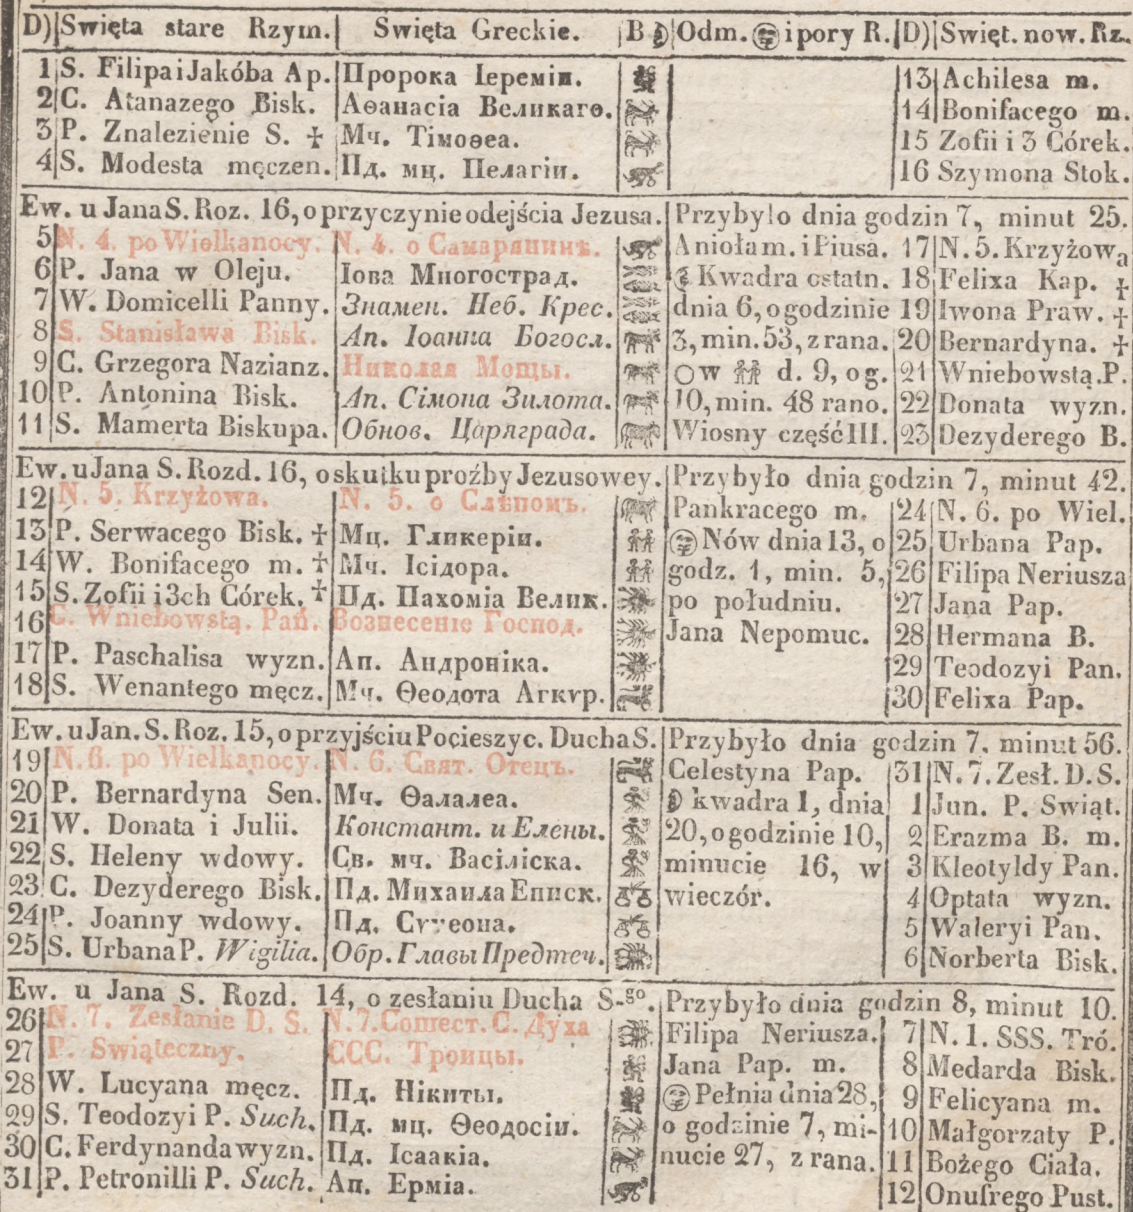 D) Swięta stare Rzym. Swięta Greckie. B Odm. i pory R. D) Swięt. now. Rz.
1 S. Filipa i Jakóba Ap. Пророка Іереміи. 13 Achilesa m.
2 C. Atanazego Bisk. Аѳанасіа Великаго. 14 Bonifacego m.
3 P. Znalezienie S. ☩ Мч. Тімоѳеа. 15 Zofii i 3 Córek.
4 S. Modesta męczen. Пд. мц. Пелагіи. 16 Szymona Stok.
Ew. u Jana S. Roz. 16, o przyczynie odejścia Jezusa. Przybyło dnia godzin 7, minut 25.
5 N. 4. po Wielkanocy. N. 4. о Самарянинѣ. Anioła m. i Piusa. 17 N. 5. Krzyżowa
6 P. Jana w Oleju. Іова Многострад. Kwadra ostatn. 18 Felixa Kap. ☩
7 W. Domicelli Panny. Знамен. Неб. Крес. dnia 6, o godzinie 19 Iwona Praw. ☩
8 S. Stanisława Bisk. Ап. Іоанна Богосл. 3, min. 53, z rana. 20 Bernardyna. ☩
9 C. Grzegora Nazianz. Николая Мощы. w d. 9, o g. 21 Wniebowstą. P.
10 P. Antonina Bisk. Ап. Сімона Зилота. 10, min. 48 rano. 22 Donata wyzn.
11 S. Mamerta Biskupa. Обнов. Царяграда. Wiosny część III. 23 Dezyderego B.
Ew. u Jana S. Rozd. 16, o skutku proźby Jezusowey. Przybyło dnia godzin 7, minut 42.
12 N. 5. Krzyżowa. N. 5. о Слѣпомъ. Pankracego m. 24 N. 6. po Wiel.
13 P. Serwacego Bisk. ☩ Мц. Гликеріи. Nów dnia 13, o 25 Urbana Pap.
14 W. Bonifacego m. ☩ Мч. Ісідора. godz. 1, min. 5, 26 Filipa Neriusza
15 S. Zofii i 3ch Córek. ☩ Пд. Пахоміа Велик. po południu. 27 Jana Pap.
16 C. Wniebowstą. Pań. Вознесеніе Господ. Jana Nepomuc. 28 Hermana B.
17 P. Paschalisa wyzn. Ап. Андроніка. 29 Teodozyi Pan.
18 S. Wenantego męcz. Мч. Ѳеодота Агкѵр. 30 Felixa Pap.
Ew. u Jan. S. Roz. 15, o przyjściu Pocieszyc. Ducha S. Przybyło dnia godzin 7, minut 56.
19 N. 6. po Wielkanocy. N. 6. Свят. Отецъ. Celestyna Pap. 31 N. 7. Zesł. D. S.
20 P. Bernardyna Sen. Мч. Ѳалалеа. kwadra 1, dnia 1 Jun. P. Swiąt.
21 W. Donata i Julii. Констант. и Елены. 20, o godzinie 10, 2 Erazma B. m.
22 S. Heleny wdowy. Св. мч. Васіліска. minucie 16, w 3 Kleotyldy Pan.
23 C. Dezyderego Bisk. Пд. Михаила Еписк. wieczór. 4 Optata wyzn.
24 P. Joanny wdowy. Пд. Сѵмеона. 5 Waleryi Pan.
25 S. Urbana P. Wigilia. Обр. Главы Предтеч. 6 Norberta Bisk.
Ew. u Jana S. Rozd. 14, o zesłaniu Ducha S-go. Przybyło dnia godzin 8, minut 10.
26 N. 7. Zesłanie D. S. N. 7. Сошест. С. Духа Filipa Neriusza. 7 N. 1. SSS. Tró.
27 P. Swiąteczny. ССС. Троицы. Jana Pap. m. 8 Medarda Bisk.
28 W. Lucyana męcz. Пд. Нікиты. Pełnia dnia 28, 9 Felicyana m.
29 S. Teodozyi P. Such. Пд. мц. Ѳеодосіи. o godzinie 7, mi- 10 Małgorzaty P.
30 C. Ferdynanda wyzn. Пд. Ісаакіа. nucie 27, z rana. 11 Bożego Ciała.
31 P. Petronilli P. Such. Ап. Ерміа. 12 Onufrego Pust.